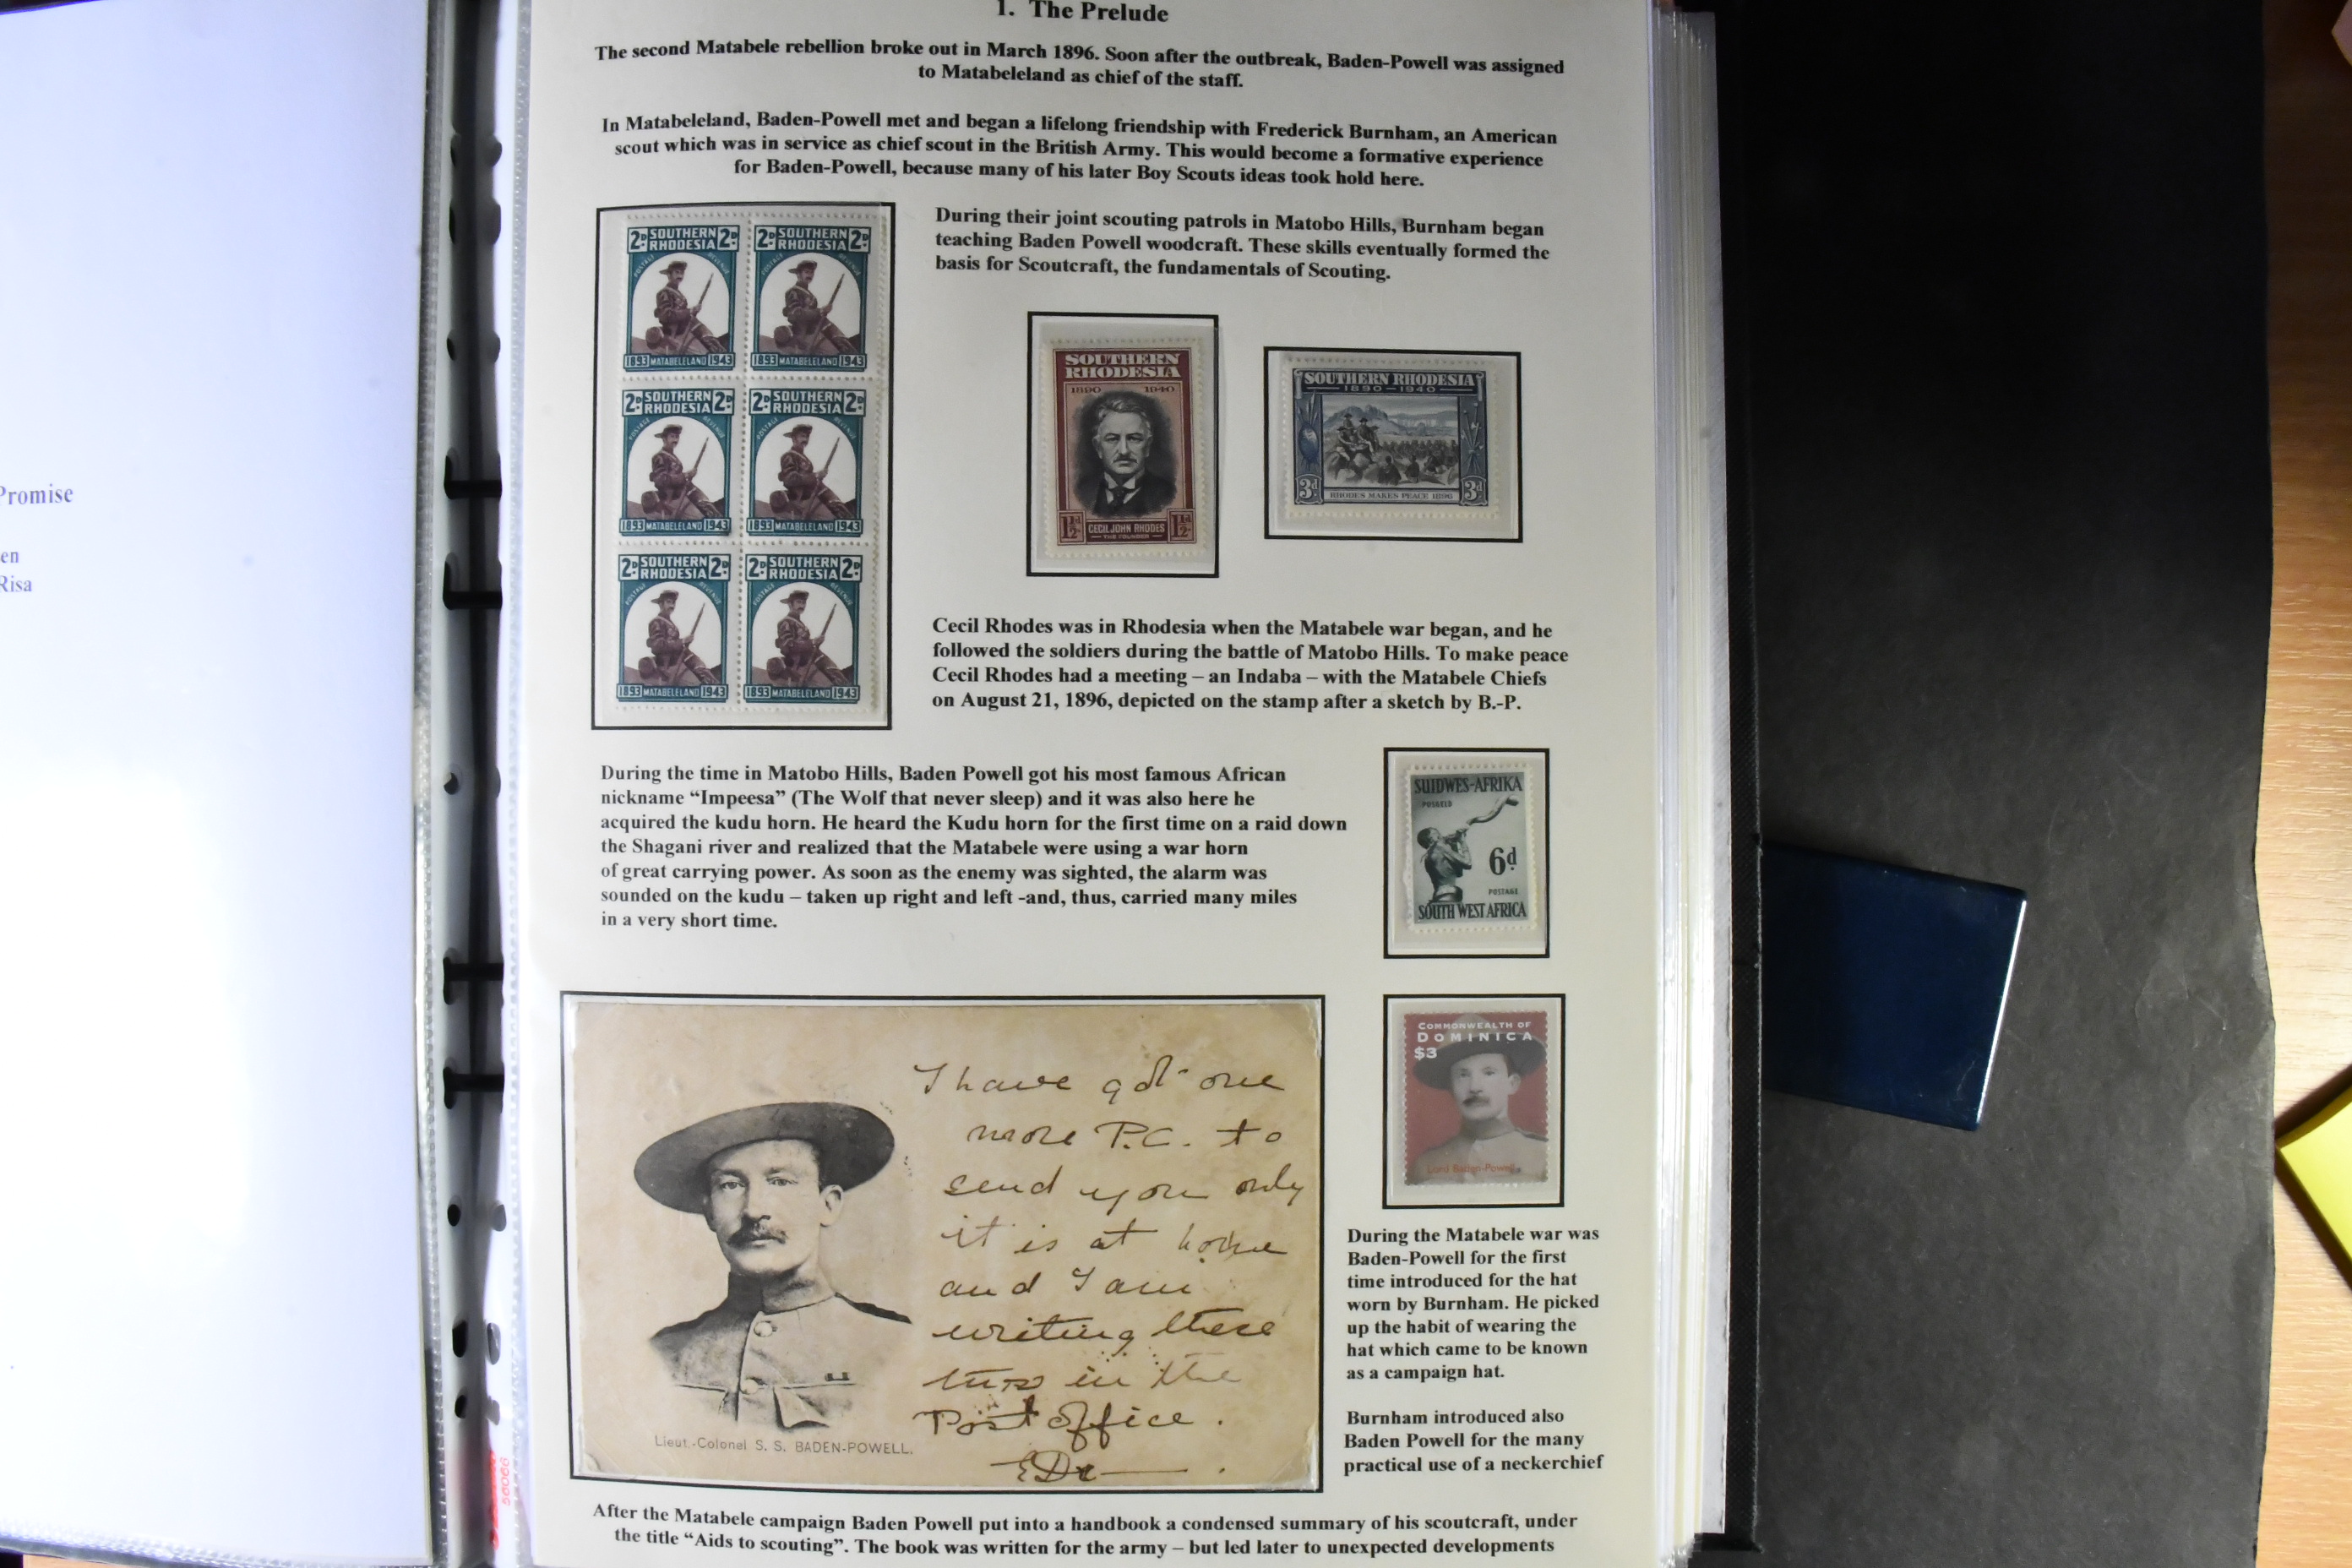 Promise
en
Risa
1. The Prelude
The second Matabele rebellion broke out in March 1896. Soon after the outbreak, Baden-Powell was assigned
to Matabeleland as chief of the staff.
In Matabeleland, Baden-Powell met and began a lifelong friendship with Frederick Burnham, an American
scout which was in service as chief scout in the British Army. This would become a formative experience
for Baden-Powell, because many of his later Boy Scouts ideas took hold here.
During their joint scouting patrols in Matobo Hills, Burnham began
teaching Baden Powell woodcraft. These skills eventually formed the
basis for Scoutcraft, the fundamentals of Scouting.
2D SOUTHERN RHODESIA 2D
POSTAGE REVENUE
1893 MATABELELAND 1943
2D SOUTHERN RHODESIA 2D
POSTAGE REVENUE
1893 MATABELELAND 1943
2D SOUTHERN RHODESIA 2D
POSTAGE REVENUE
1893 MATABELELAND 1943
2D SOUTHERN RHODESIA 2D
POSTAGE REVENUE
1893 MATABELELAND 1943
2D SOUTHERN RHODESIA 2D
POSTAGE REVENUE
1893 MATABELELAND 1943
2D SOUTHERN RHODESIA 2D
POSTAGE REVENUE
1893 MATABELELAND 1943
SOUTHERN
RHODESIA
1890 1940
1½d CECIL JOHN RHODES 1½d
THE FOUNDER
SOUTHERN RHODESIA
1890-1940
3d RHODES MAKES PEACE 1896 3d
Cecil Rhodes was in Rhodesia when the Matabele war began, and he
followed the soldiers during the battle of Matobo Hills. To make peace
Cecil Rhodes had a meeting – an Indaba – with the Matabele Chiefs
on August 21, 1896, depicted on the stamp after a sketch by B.-P.
During the time in Matobo Hills, Baden Powell got his most famous African
nickname “Impeesa” (The Wolf that never sleep) and it was also here he
acquired the kudu horn. He heard the Kudu horn for the first time on a raid down
the Shagani river and realized that the Matabele were using a war horn
of great carrying power. As soon as the enemy was sighted, the alarm was
sounded on the kudu – taken up right and left -and, thus, carried many miles
in a very short time.
SUIDWES-AFRIKA
POSGELD
6d
POSTAGE
SOUTH WEST AFRICA
I have got one
more P.C. to
send you only
it is at home
and I am
writing these
two in the
Post Office.
Lieut.-Colonel S. S. BADEN-POWELL.
COMMONWEALTH OF
DOMINICA
$3
Lord Baden-Powell
During the Matabele war was
Baden-Powell for the first
time introduced for the hat
worn by Burnham. He picked
up the habit of wearing the
hat which came to be known
as a campaign hat.
Burnham introduced also
Baden Powell for the many
practical use of a neckerchief
After the Matabele campaign Baden Powell put into a handbook a condensed summary of his scoutcraft, under
the title “Aids to scouting”. The book was written for the army – but led later to unexpected developments